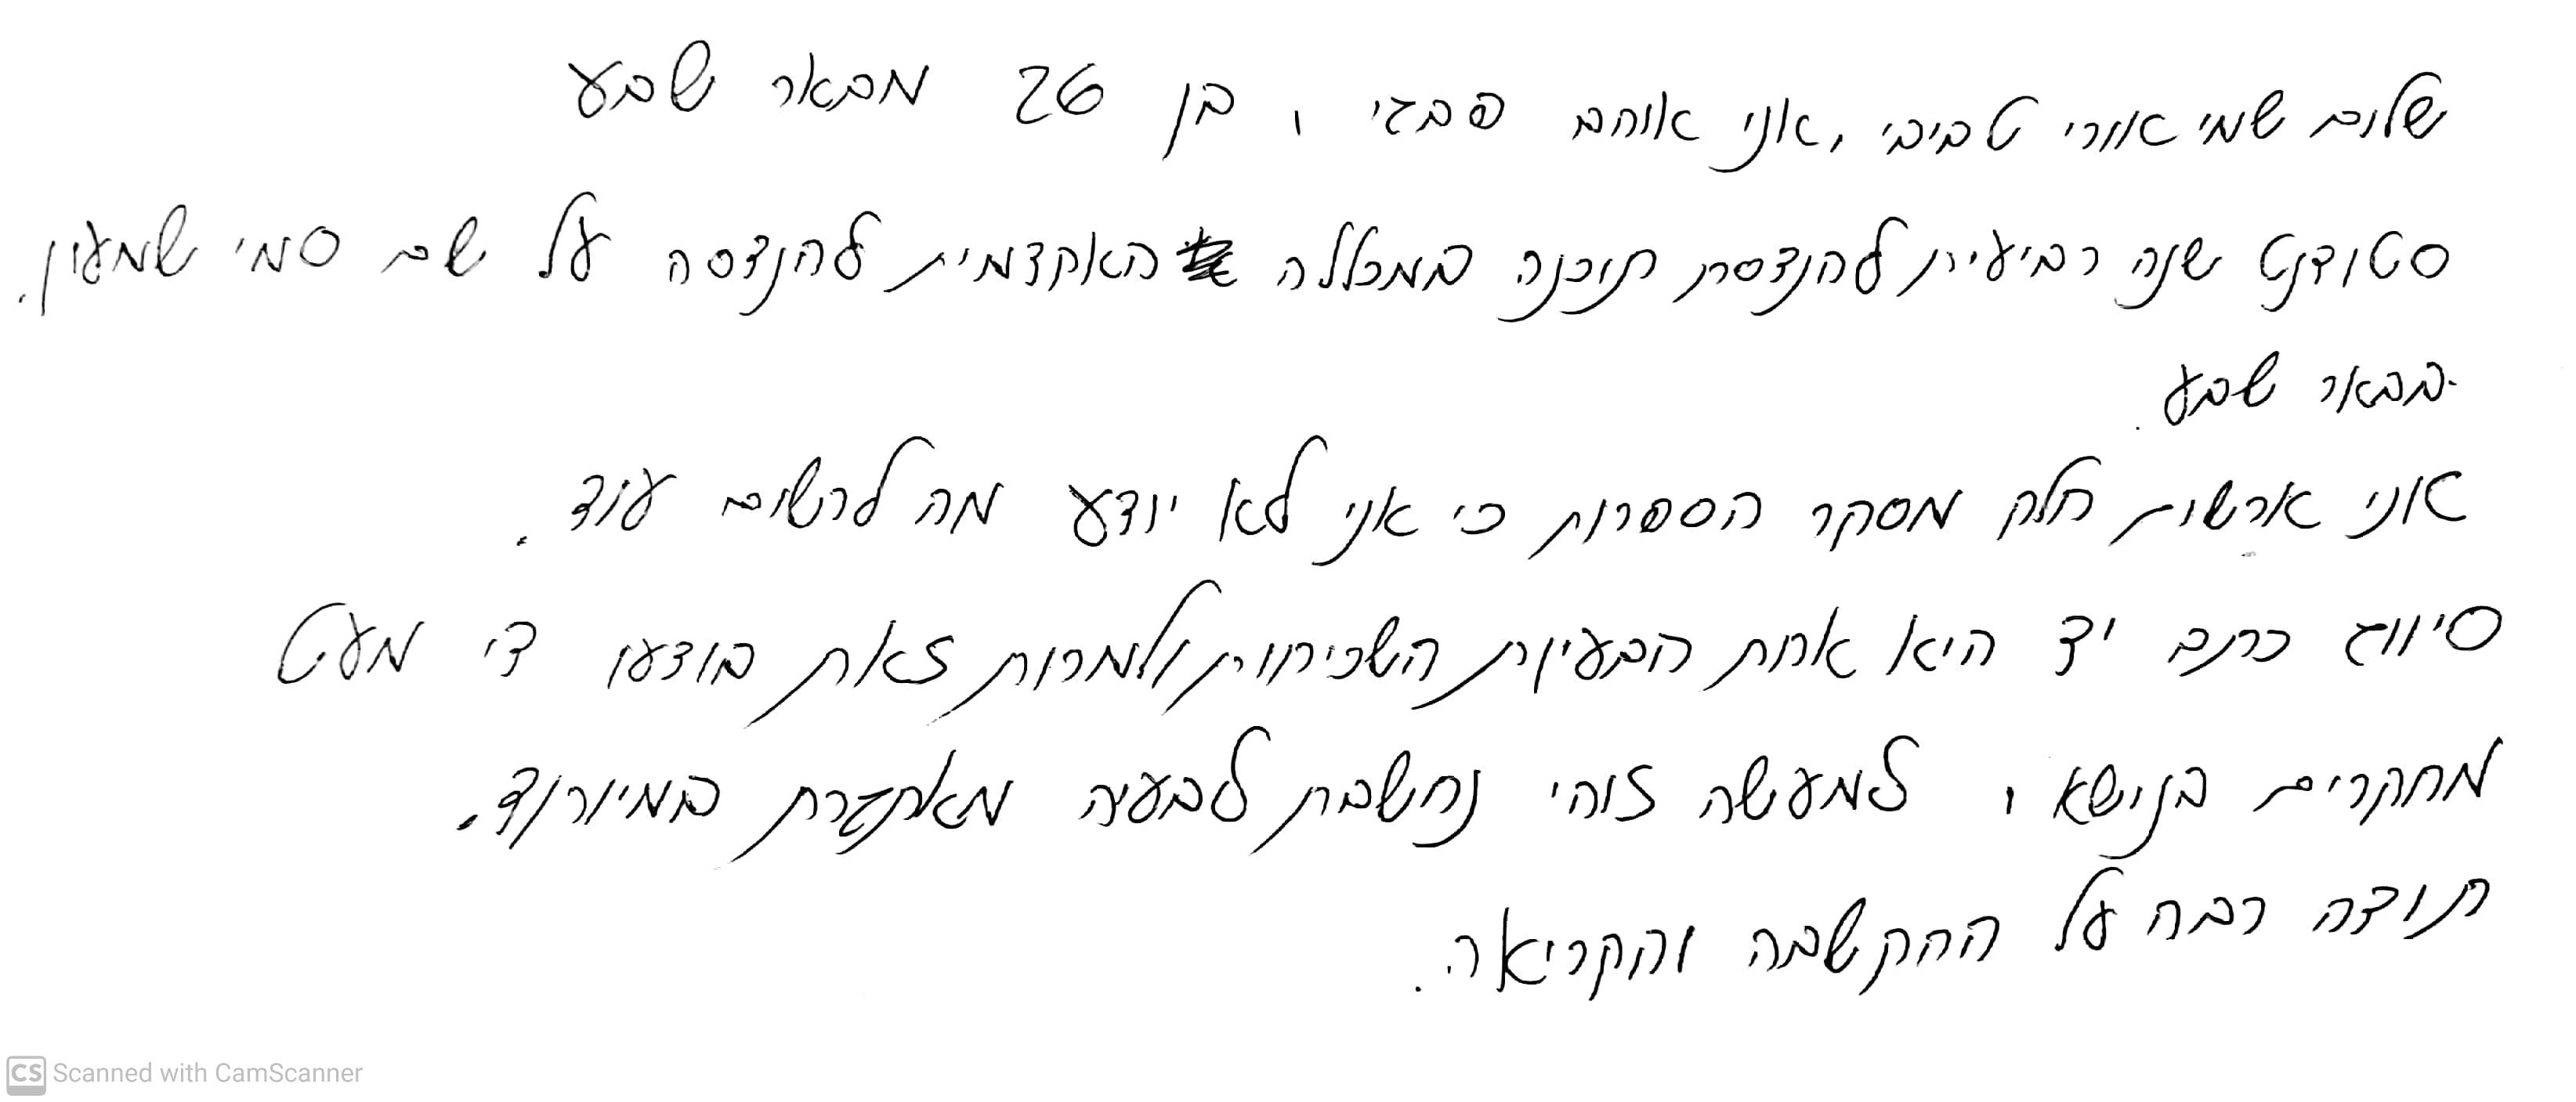 שלום שמי אורי טביבי, אני אוהב פבגי, בן 26 מבאר שבע
סטודנט שנה רביעית להנדסת תוכנה במכללה האקדמית להנדסה על שם סמי שמעון.
בבאר שבע.
אני ארשום חלק מסקר הספרות כי אני לא יודע מה לרשום עוד.
סיווג כתב יד היא אחת הבעיות השכיחות ולמרות זאת בוצעו די מעט
מחקרים בנושא, למעשה זוהי נחשבת לבעיה מאתגרת במיוחד.
תודה רבה על ההקשבה והקריאה.
CS Scanned with CamScanner